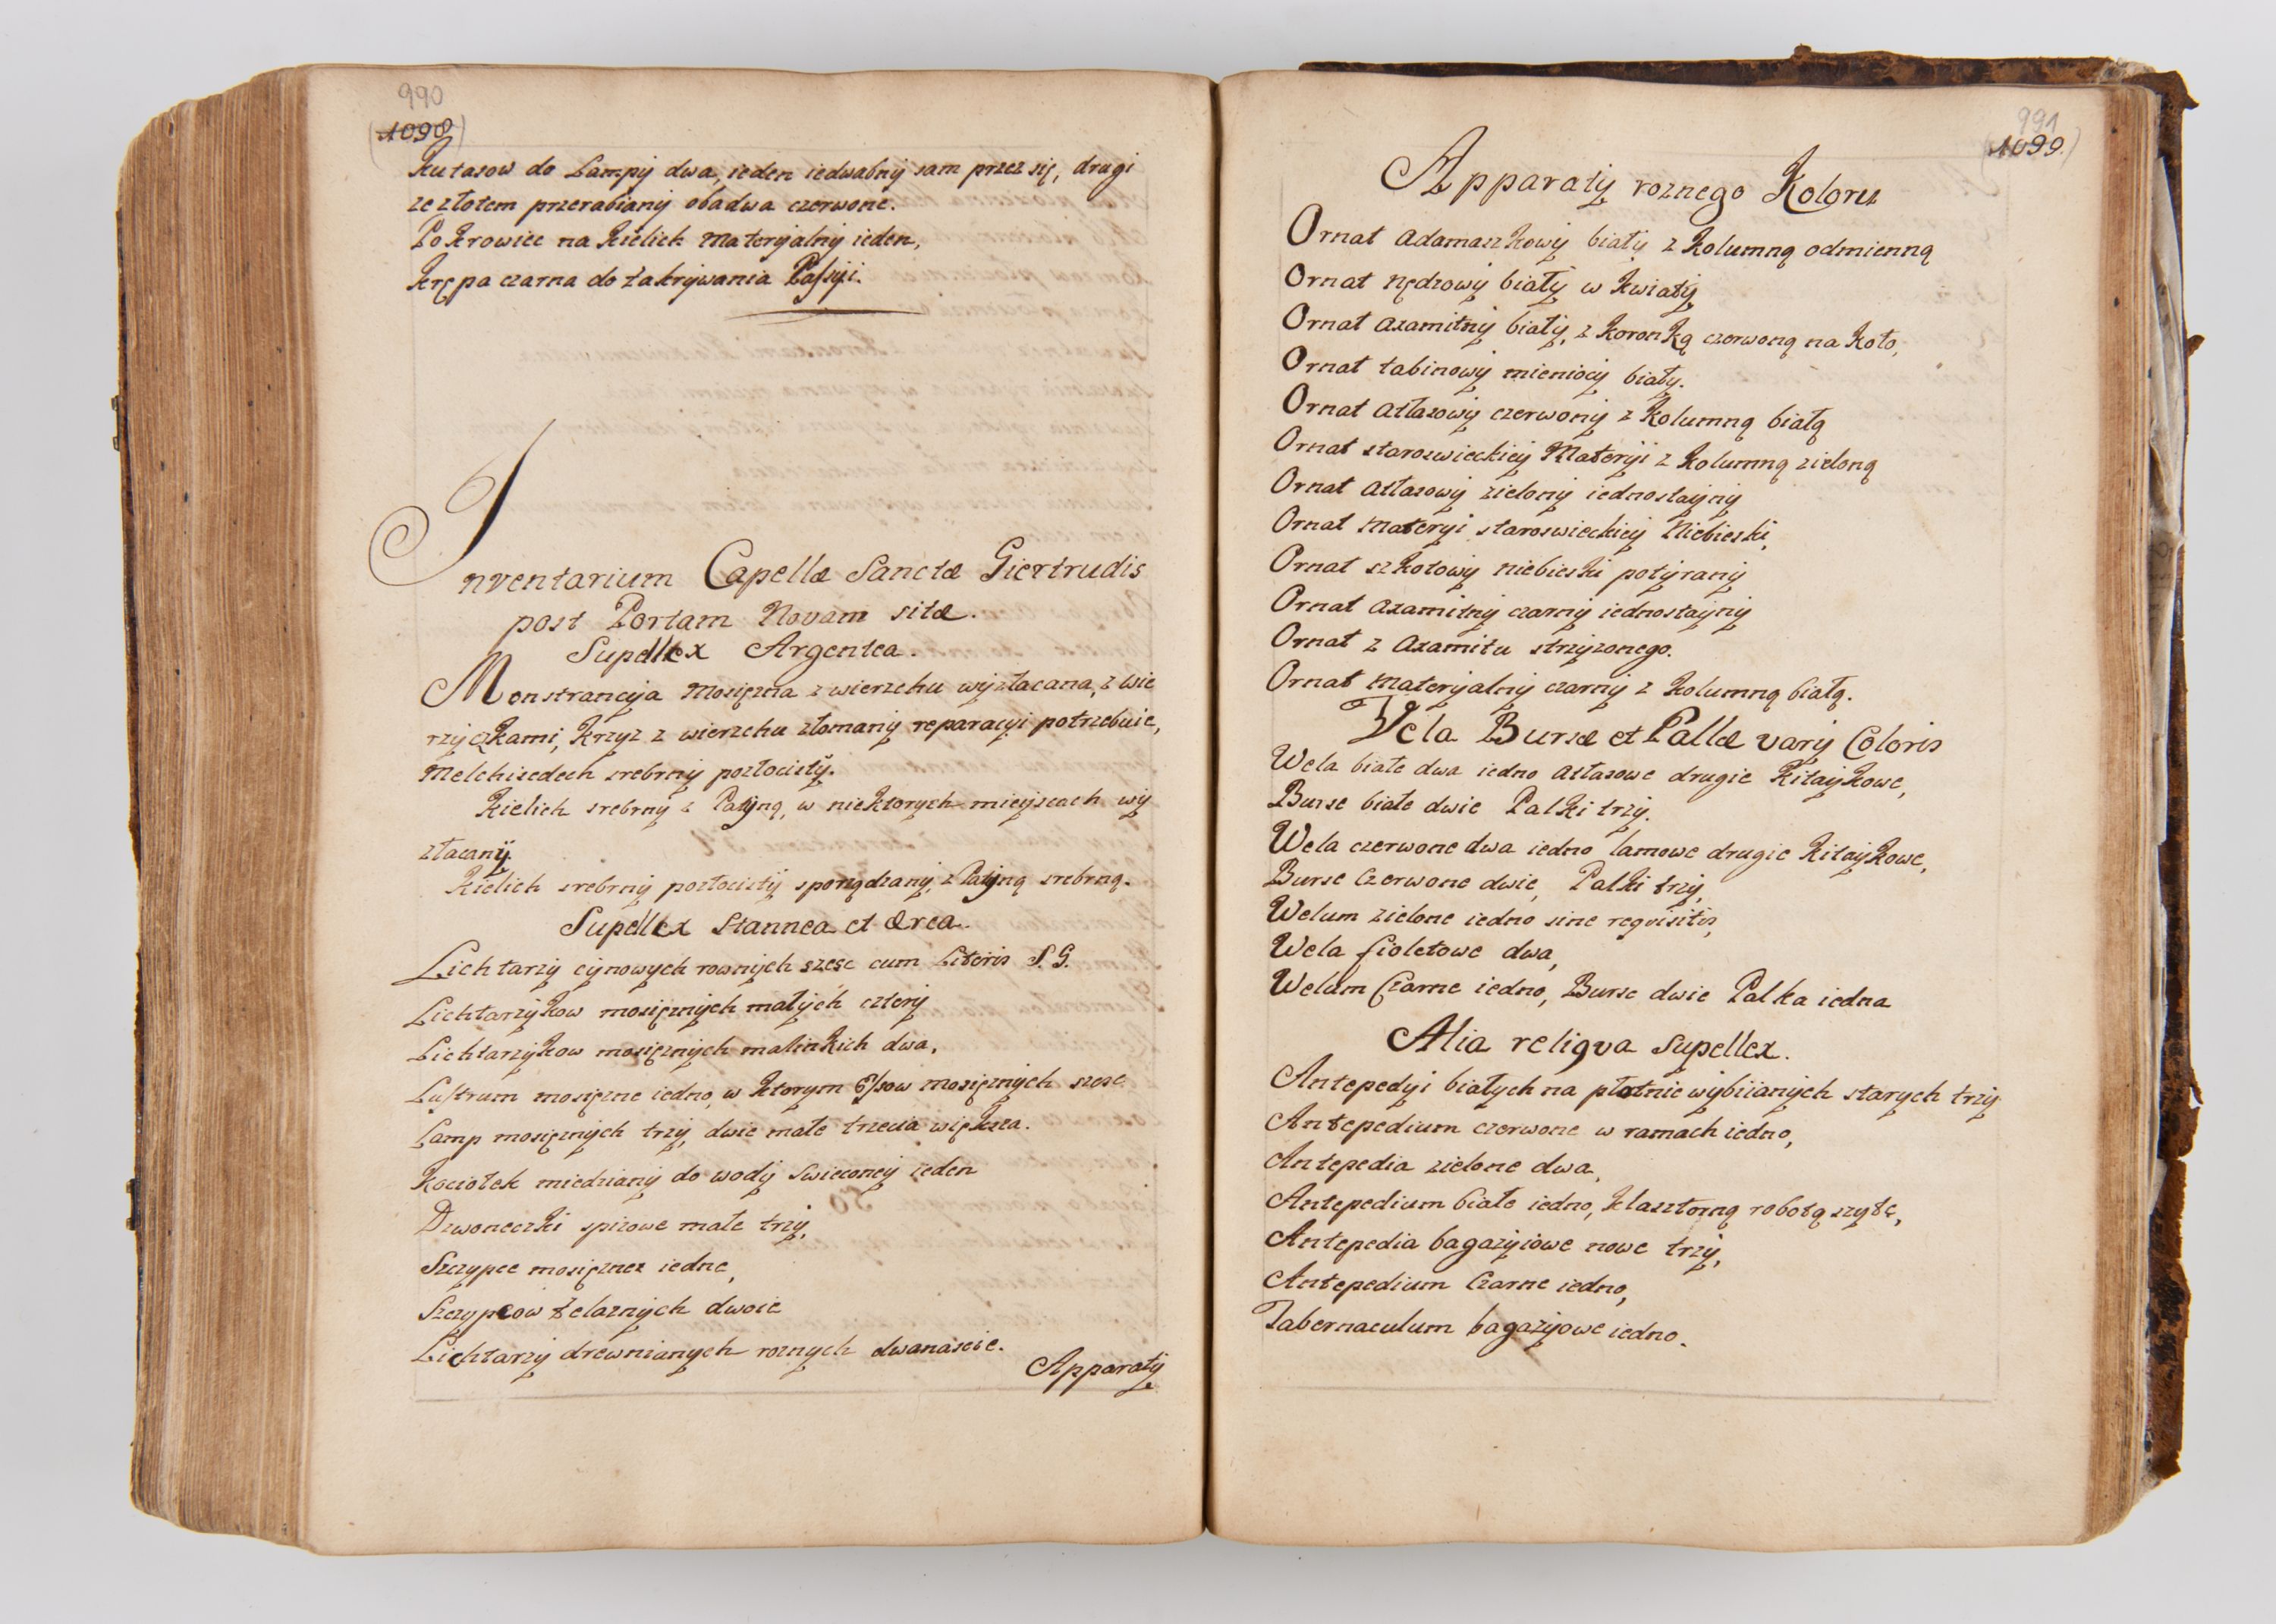 990
1098
Kutasow do Lampÿ dwa, ieden iedwabnÿ sam przez się, drugi
ze złotem przerabianÿ obadwa czerwone.
Pokrowiec na Kielich Materÿalnÿ ieden,
Krępa czarna do zakrÿwania Passÿi.
Inventarium Capellæ Sanctæ Giertrudis
post Portam Novam sitæ.
Supellex Argentea.
Monstrancÿa Mosięzna z wierzchu wÿzłacana, z wie
rzÿczkami, Krzyz z wierzchu złomanÿ reparacÿi potrzebuie,
Melchisedech srebrnÿ pozłocistÿ.
Kielich srebrnÿ z Patÿną, w niektorych mieÿscach wÿ
złacanÿ.
Kielich srebrnÿ pozłocistÿ sporządzanÿ, z Patÿną srebrną.
Supellex Stannea et ærea.
Lichtarzÿ cÿnowych rownÿch szesc cum Literis S. G.
Lichtarzÿkow mosięznÿch małÿch czterÿ
Lichtarzÿkow mosięznÿch malinkich dwa,
Lustrum mosięzne iedno, w ktorym mosięznÿch szesc
Lamp mosięznÿch trzÿ, dwie małe trzecia większa.
Kociołek miedzianÿ do wodÿ swieconeÿ ieden
Dzwoneczki spizowe małe trzÿ,
Szczypce mosięznez iedne,
Szczypcow zelaznÿch dwoie
Lichtarzÿ drewnianych roznych dwanascie.
Apparatÿ
991
1099.
Apparatÿ roznego Koloru
Ornat Adamaszkowÿ białÿ z Kolumną odmienną
Ornat nędzowÿ białÿ w Kwiatÿ
Ornat axamitnÿ białÿ, z Koronką czerwoną na koło,
Ornat tabinowÿ mieniocÿ białÿ.
Ornat Atłasowÿ czerwonÿ z Kolumną białą
Ornat staroswieckieÿ Materÿi z Kolumną zieloną
Ornat Atłasowÿ zielonÿ iednostaÿnÿ
Ornat Materyi staroswieckieÿ Niebieski,
Ornat szkotowÿ niebieski potÿranÿ
Ornat Axamitnÿ czarnÿ iednostaÿnÿ
Ornat z Axamitu strzÿzonego.
Ornat Materÿalnÿ czarnÿ z Kolumną białą.
Vela Bursæ et Pallæ varÿ Coloris
Wela białe dwa iedno Atłasowe drugie Kitaÿkowe,
Burse białe dwie Palki trzÿ.
Wela czerwone dwa iedno lamowe drugie Kitaÿkowe,
Burse Czerwone dwie, Palki trzÿ,
Welum zielone iedno sine reqvisitis,
Wela fioletowe dwa,
Welum Czarne iedno, Burse dwie Palka iedna
Alia reliqva Supellex.
Antepedyi białych na płotnie wÿbiianÿch starych trzÿ
Antepedium czerwone w ramach iedno,
Antepedia zielone dwa,
Antepedium białe iedno, klasztorną robotą szytę,
Antepedia bagazÿiowe nowe trzÿ,
Antepedium Czarne iedno,
Tabernaculum bagazÿowe iedno.